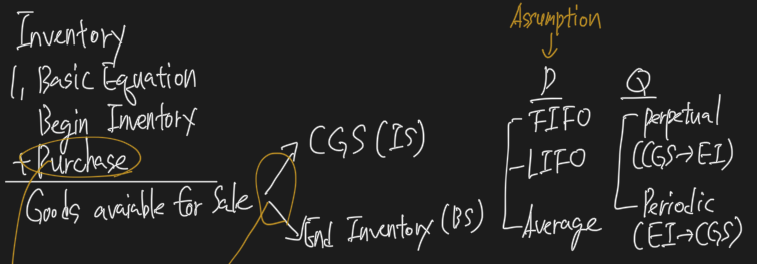 Inventory
1, Basic Equation
Begin Inventory
+ Purchase
Goods avaiable for Sale
CGS (IS)
End Inventory (BS)
Assumption
P
FIFO
LIFO
Average
Q
perpetual
(CGS→EI)
Periodic
(EI→CGS)